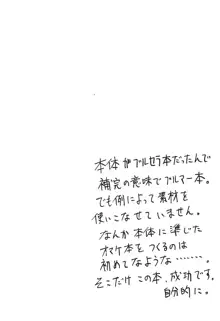 本体がブルセラ本だったんで
補完の意味でブルマー本。
でも例によって素材を
使いこなせていません。
なんか本体に準じた
オマケ本をつくるのは
初めてなような……。
そこだけこの本、成功です。
自分的に。